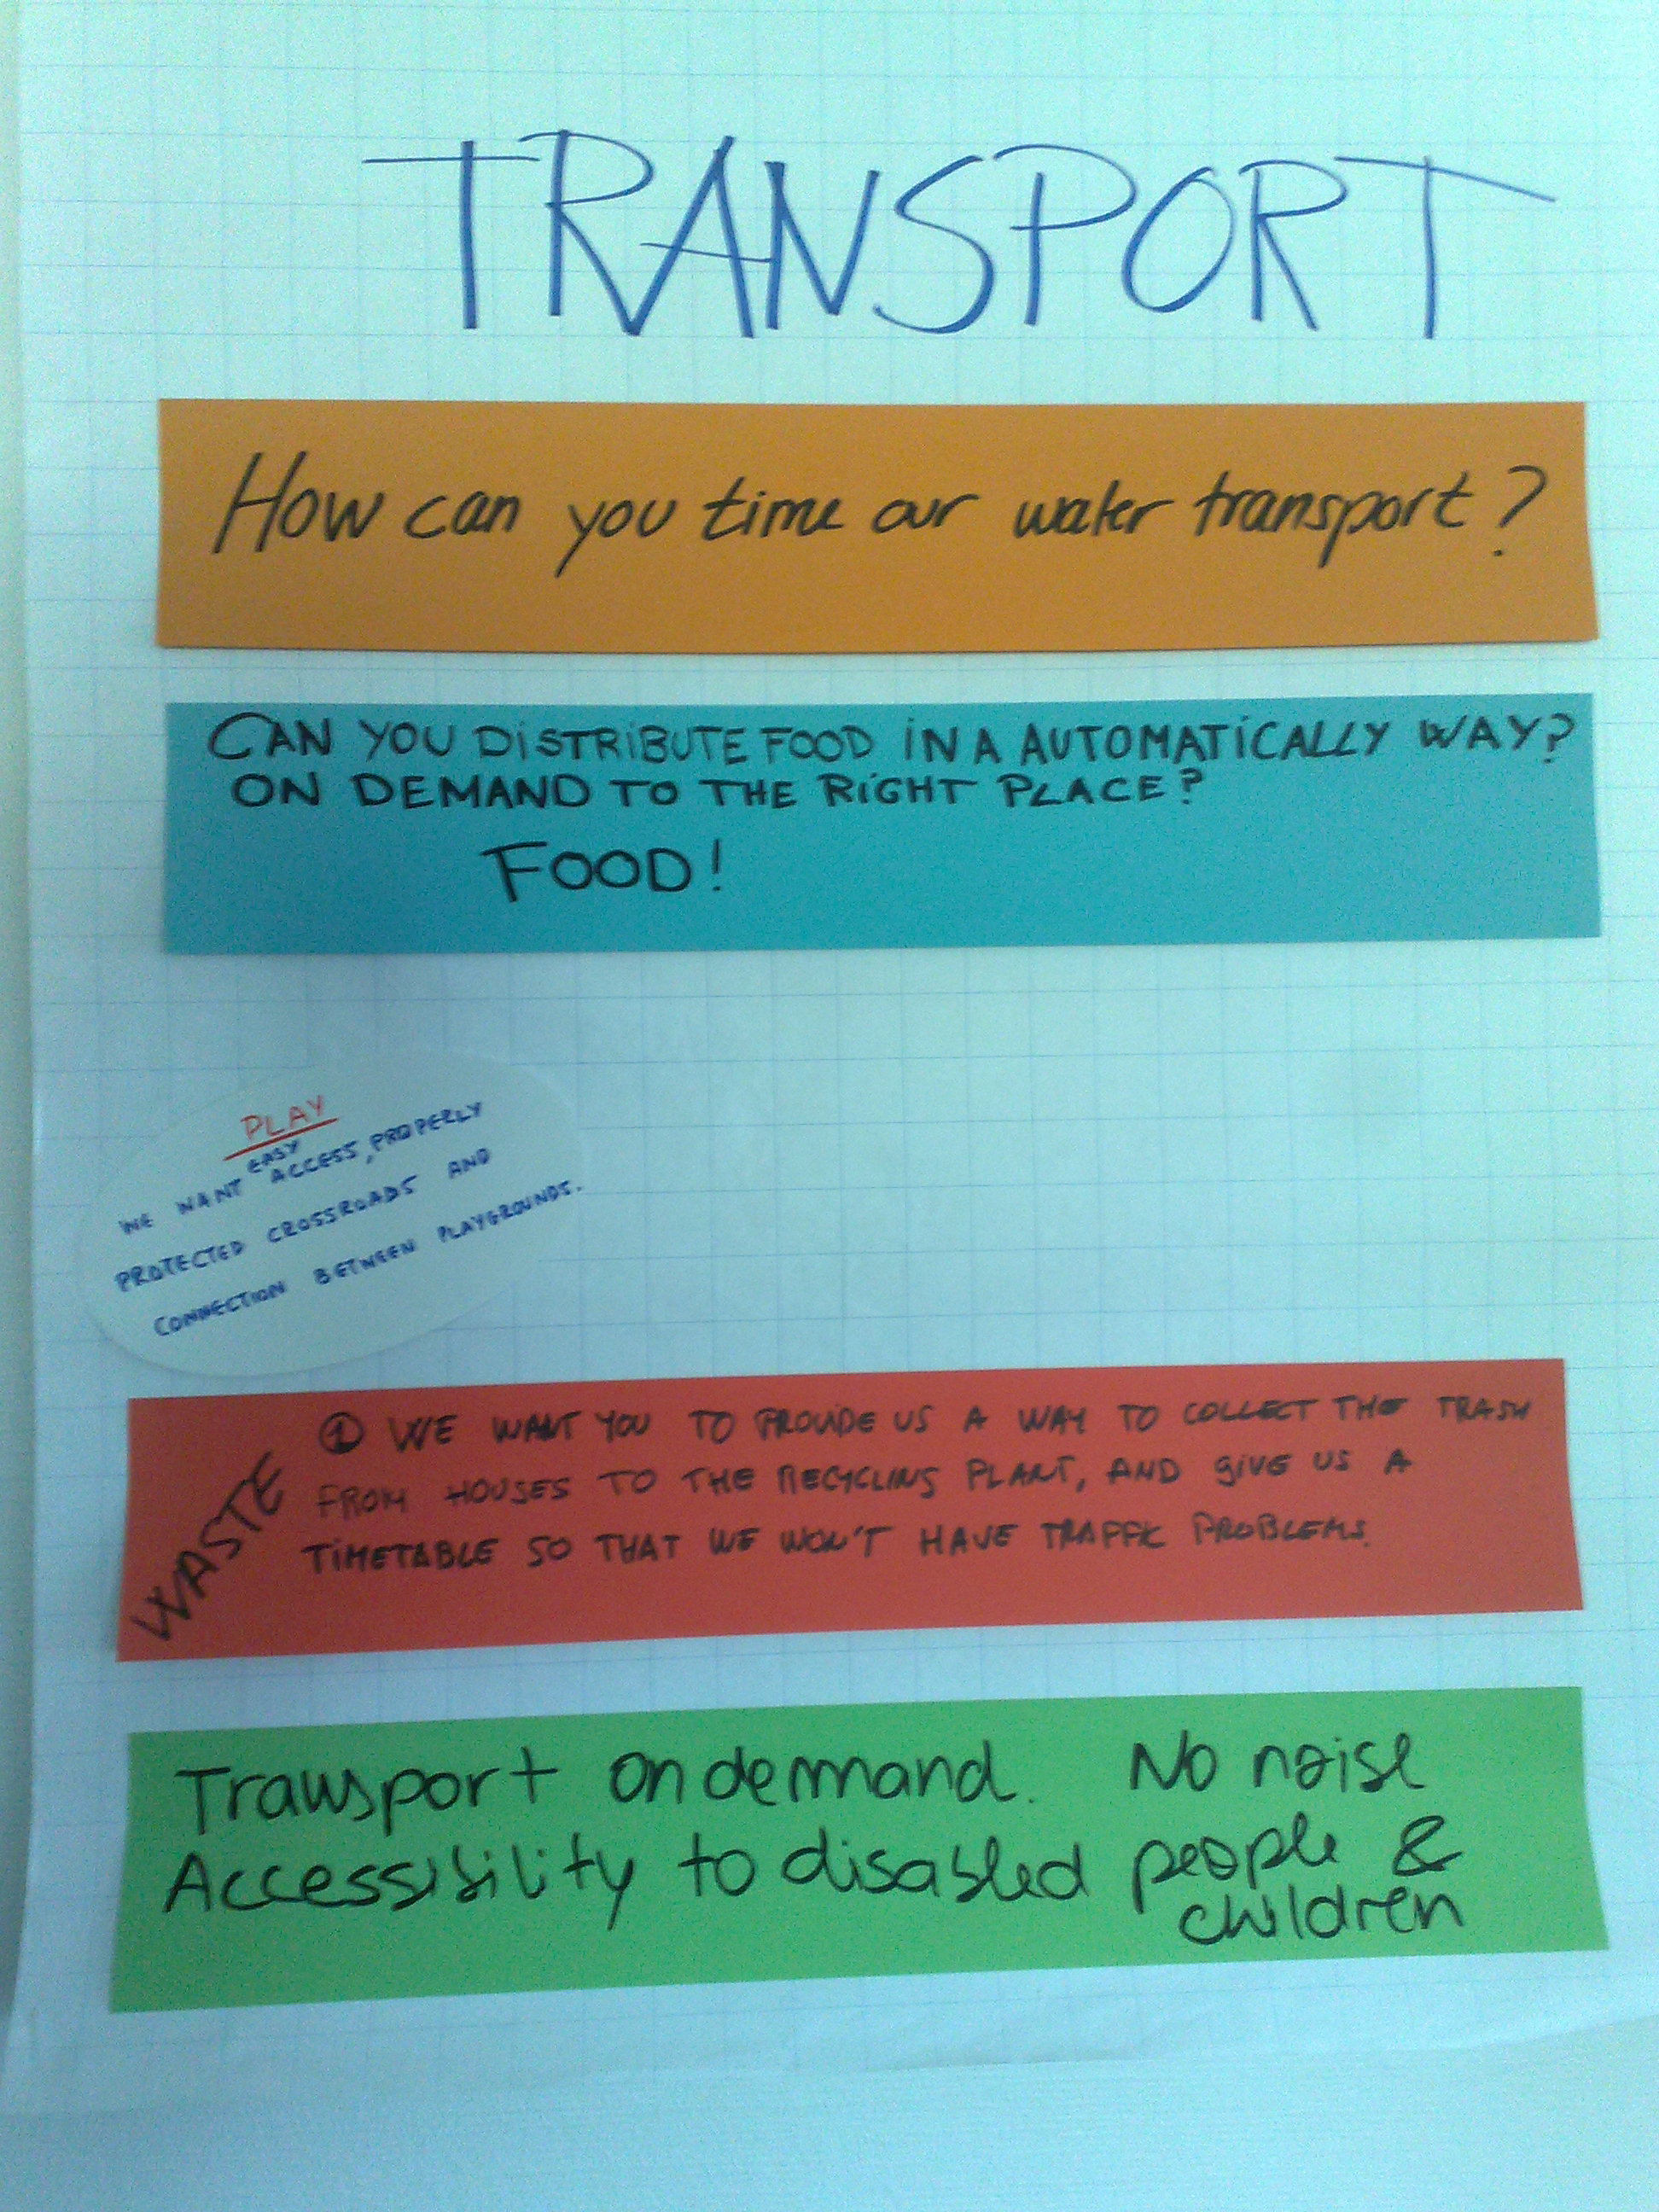 TRANSPORT
How can you time our water transport?
CAN YOU DISTRIBUTE FOOD IN A AUTOMATICALLY WAY?
ON DEMAND TO THE RIGHT PLACE?
FOOD!
PLAY
WE WANT EASY ACCESS, PROPERLY
PROTECTED CROSSROADS AND
CONNECTION BETWEEN PLAYGROUNDS.
WASTE
① WE WANT YOU TO PROVIDE US A WAY TO COLLECT THE TRASH
FROM HOUSES TO THE RECYCLING PLANT, AND GIVE US A
TIMETABLE SO THAT WE WON'T HAVE TRAFFIC PROBLEMS.
Transport on demand. No noise
Accessibility to disabled people &
children